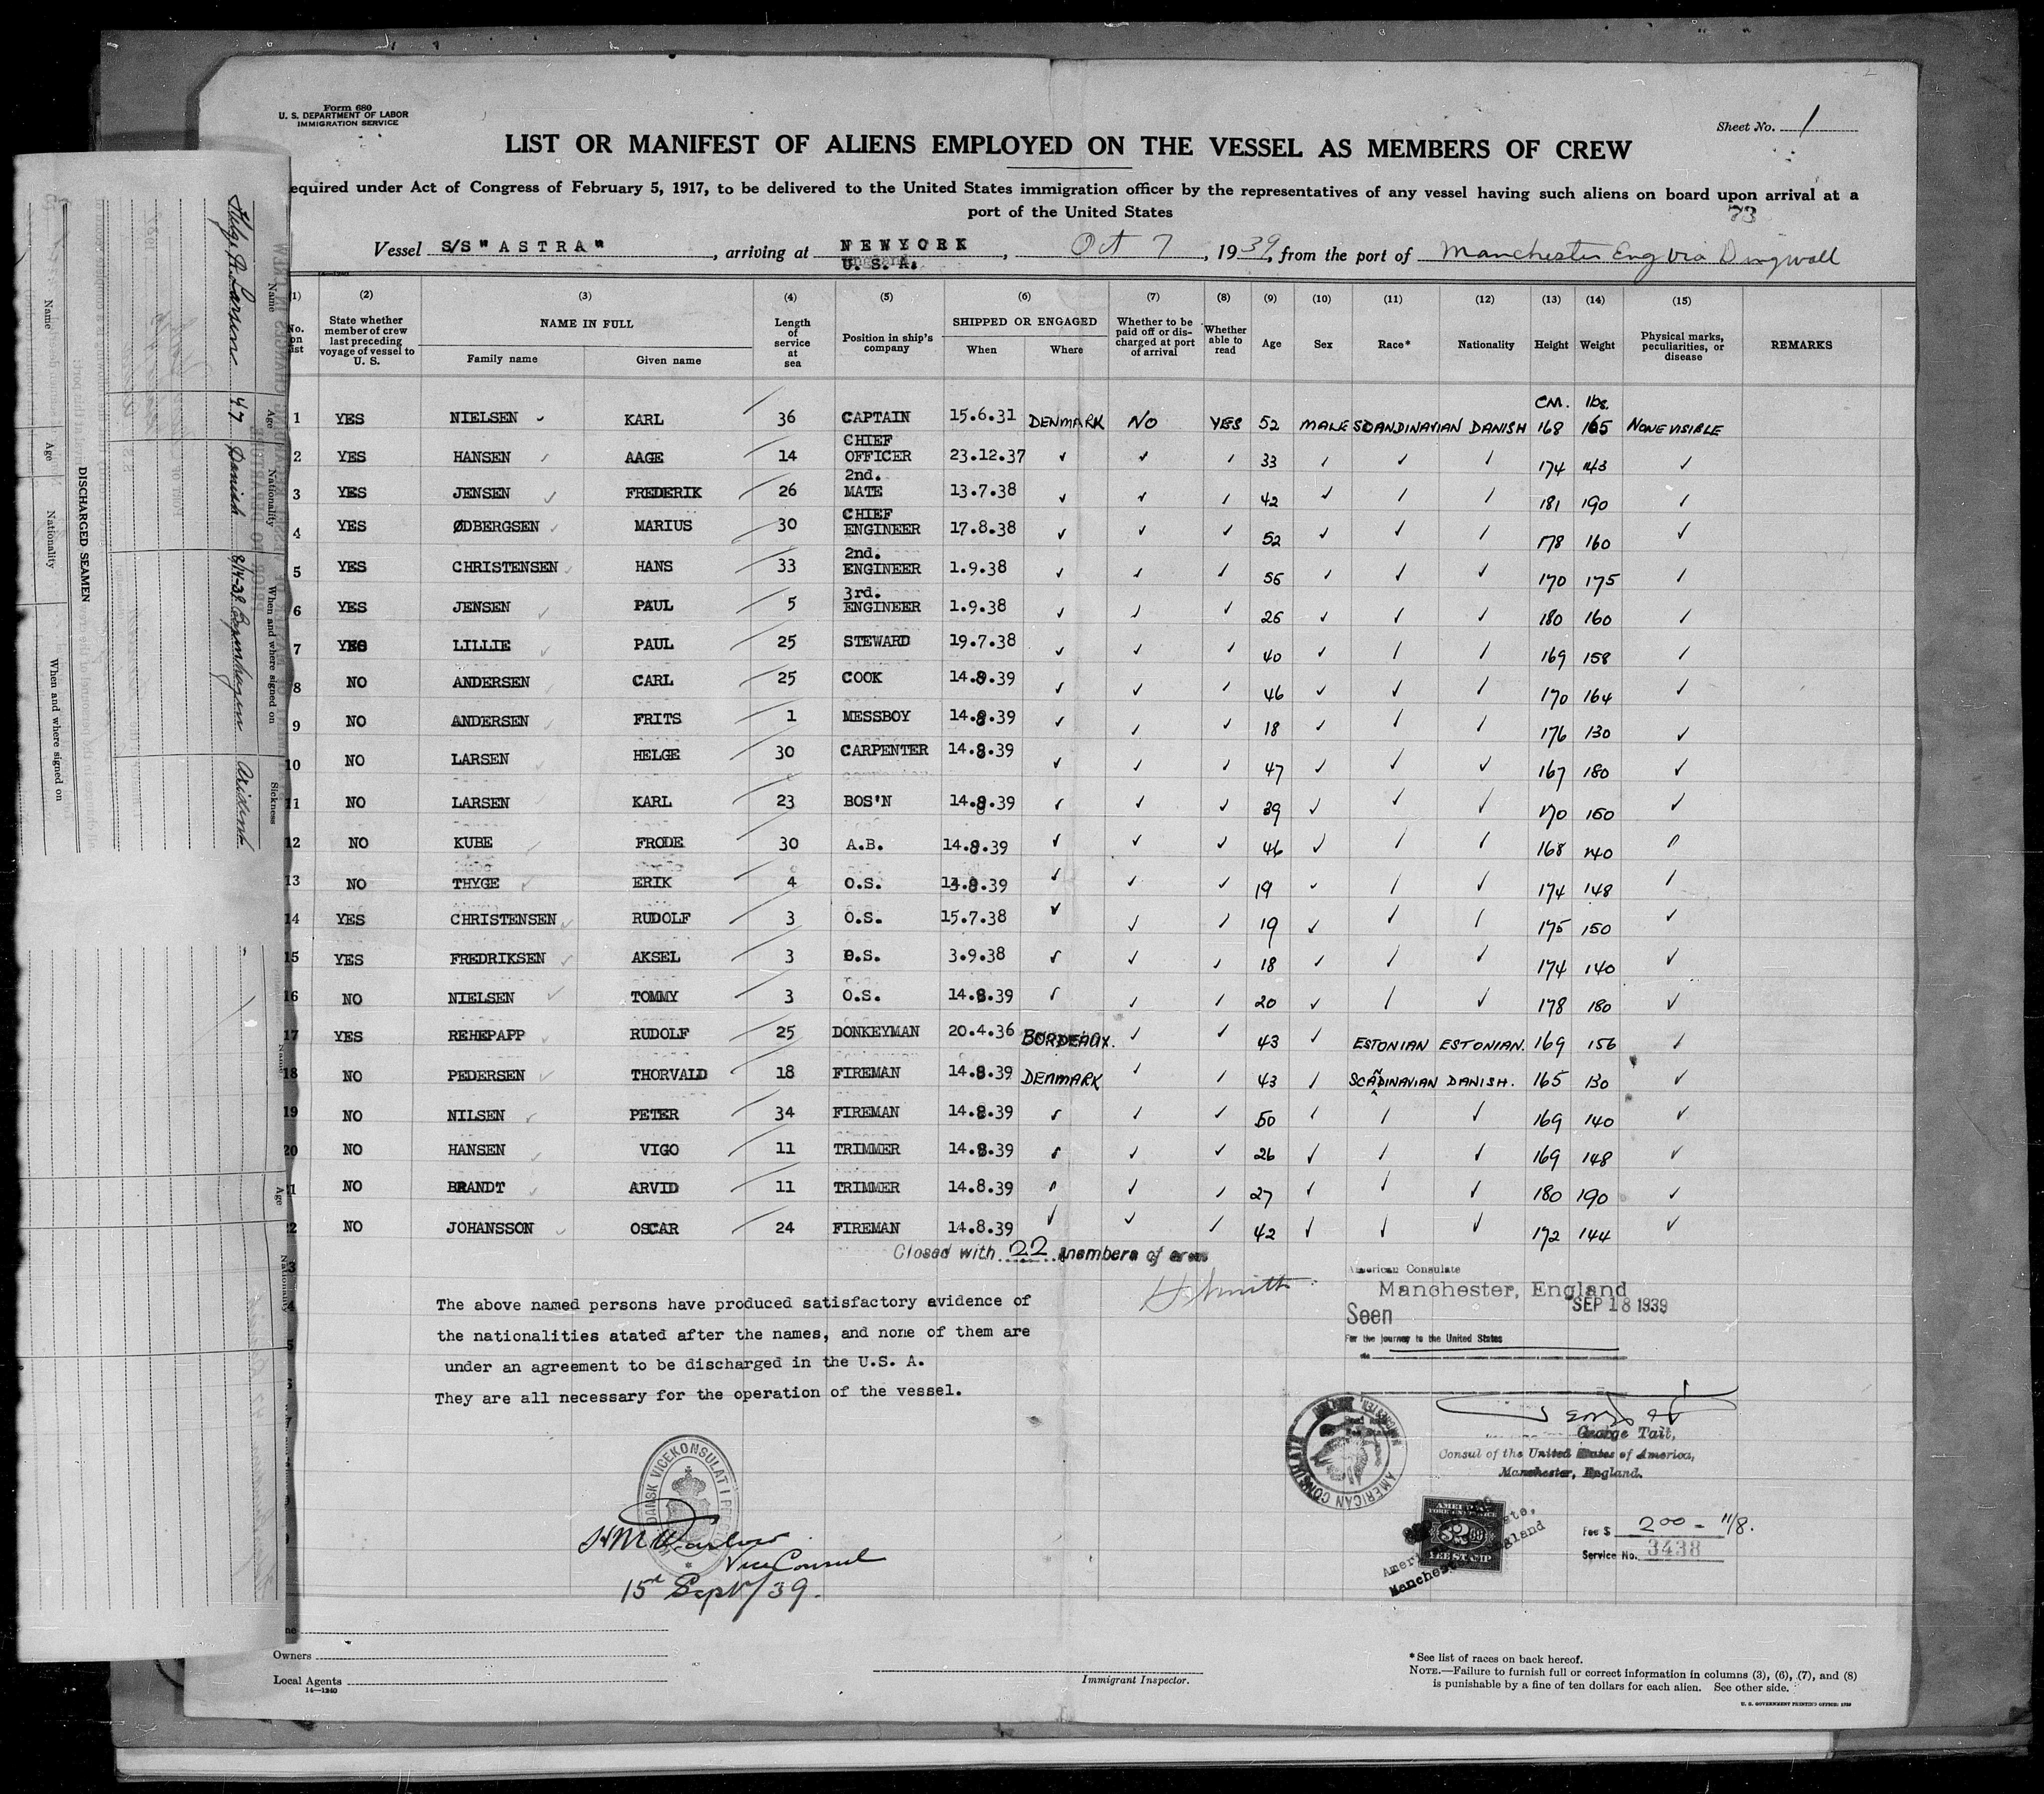 Form 680
U. S. DEPARTMENT OF LABOR
IMMIGRATION SERVICE
Sheet No. 1
LIST OR MANIFEST OF ALIENS EMPLOYED ON THE VESSEL AS MEMBERS OF CREW
equired under Act of Congress of February 5, 1917, to be delivered to the United States immigration officer by the representatives of any vessel having such aliens on board upon arrival at a
port of the United States
73
Vessel S/S "ASTRA", arriving at NEWYORK U.S.A., Oct 7, 1939, from the port of Manchester Eng via Dingwall
(1) (2) (3) (4) (5) (6) (7) (8) (9) (10) (11) (12) (13) (14) (15)
No. on list
State whether member of crew last preceding voyage of vessel to U. S.
NAME IN FULL
Family name
Given name
Length of service at sea
Position in ship's company
SHIPPED OR ENGAGED
When
Where
Whether to be paid off or discharged at port of arrival
Whether able to read
Age
Sex
Race*
Nationality
Height
Weight
Physical marks, peculiarities, or disease
REMARKS
CM. lbs.
1 YES NIELSEN ✓ KARL 36 CAPTAIN 15.6.31 DENMARK NO YES 52 MALE SCANDINAVIAN DANISH 168 165 NONE VISIBLE
2 YES HANSEN ✓ AAGE 14 CHIEF OFFICER 23.12.37 ✓ ✓ ✓ 33 ✓ ✓ ✓ 174 143 ✓
3 YES JENSEN ✓ FREDERIK 26 2nd. MATE 13.7.38 ✓ ✓ ✓ 42 ✓ ✓ ✓ 181 190 ✓
4 YES ØDBERGSEN ✓ MARIUS 30 CHIEF ENGINEER 17.8.38 ✓ ✓ ✓ 52 ✓ ✓ ✓ 178 160 ✓
5 YES CHRISTENSEN ✓ HANS 33 2nd. ENGINEER 1.9.38 ✓ ✓ ✓ 56 ✓ ✓ ✓ 170 175 ✓
6 YES JENSEN ✓ PAUL 5 3rd. ENGINEER 1.9.38 ✓ ✓ ✓ 26 ✓ ✓ ✓ 180 160 ✓
7 YES LILLIE ✓ PAUL 25 STEWARD 19.7.38 ✓ ✓ ✓ 40 ✓ ✓ ✓ 169 158 ✓
8 NO ANDERSEN ✓ CARL 25 COOK 14.8.39 ✓ ✓ ✓ 46 ✓ ✓ ✓ 170 164 ✓
9 NO ANDERSEN ✓ FRITS 1 MESSBOY 14.8.39 ✓ ✓ ✓ 18 ✓ ✓ ✓ 176 130 ✓
10 NO LARSEN ✓ HELGE 30 CARPENTER 14.8.39 ✓ ✓ ✓ 47 ✓ ✓ ✓ 167 180 ✓
11 NO LARSEN ✓ KARL 23 BOS'N 14.8.39 ✓ ✓ ✓ 39 ✓ ✓ ✓ 170 150 ✓
12 NO KUBE ✓ FRODE 30 A.B. 14.8.39 ✓ ✓ ✓ 46 ✓ ✓ ✓ 168 140 ✓
13 NO THYGE ✓ ERIK 4 O.S. 14.8.39 ✓ ✓ ✓ 19 ✓ ✓ ✓ 174 148 ✓
14 YES CHRISTENSEN ✓ RUDOLF 3 O.S. 15.7.38 ✓ ✓ ✓ 19 ✓ ✓ ✓ 175 150 ✓
15 YES FREDRIKSEN ✓ AKSEL 3 O.S. 3.9.38 ✓ ✓ ✓ 18 ✓ ✓ ✓ 174 140 ✓
16 NO NIELSEN ✓ TOMMY 3 O.S. 14.8.39 ✓ ✓ ✓ 20 ✓ ✓ ✓ 178 180 ✓
17 YES REHEPAPP ✓ RUDOLF 25 DONKEYMAN 20.4.36 BORDEAUX. ✓ ✓ 43 ✓ ESTONIAN ESTONIAN. 169 156 ✓
18 NO PEDERSEN ✓ THORVALD 18 FIREMAN 14.8.39 DENMARK ✓ ✓ 43 ✓ SCADINAVIAN DANISH. 165 130 ✓
19 NO NILSEN ✓ PETER 34 FIREMAN 14.8.39 ✓ ✓ ✓ 50 ✓ ✓ ✓ 169 140 ✓
20 NO HANSEN ✓ VIGO 11 TRIMMER 14.8.39 ✓ ✓ ✓ 26 ✓ ✓ ✓ 169 148 ✓
1 NO BRANDT ✓ ARVID 11 TRIMMER 14.8.39 ✓ ✓ ✓ 27 ✓ ✓ ✓ 180 190 ✓
2 NO JOHANSSON ✓ OSCAR 24 FIREMAN 14.8.39 ✓ ✓ ✓ 42 ✓ ✓ ✓ 172 144 ✓
Closed with 22 members of crew
The above named persons have produced satisfactory evidence of
the nationalities atated after the names, and none of them are
under an agreement to be discharged in the U.S. A.
They are all necessary for the operation of the vessel.
H Smith
American Consulate
Manchester, England
Seen SEP 18 1939
For the journey to the United States
George Tait,
Consul of the United States of America,
Manchester, England.
AMERICAN CONSULATE
DANSK VICEKONSULAT I
Vice Consul
15th Sept/39.
FEE STAMP
Fee $ 2 00 - 11/8.
Service No. 3438
Owners
Local Agents
14—1240
Immigrant Inspector.
*See list of races on back hereof.
NOTE.—Failure to furnish full or correct information in columns (3), (6), (7), and (8)
is punishable by a fine of ten dollars for each alien. See other side.
U. S. GOVERNMENT PRINTING OFFICE: 1939
DISCHARGED SEAMEN
Name Age Nationality When and where signed on
Name Age Nationality When and where signed on Sickness
Helge A. Larsen 47 Danish 8/14-39 Copenhagen